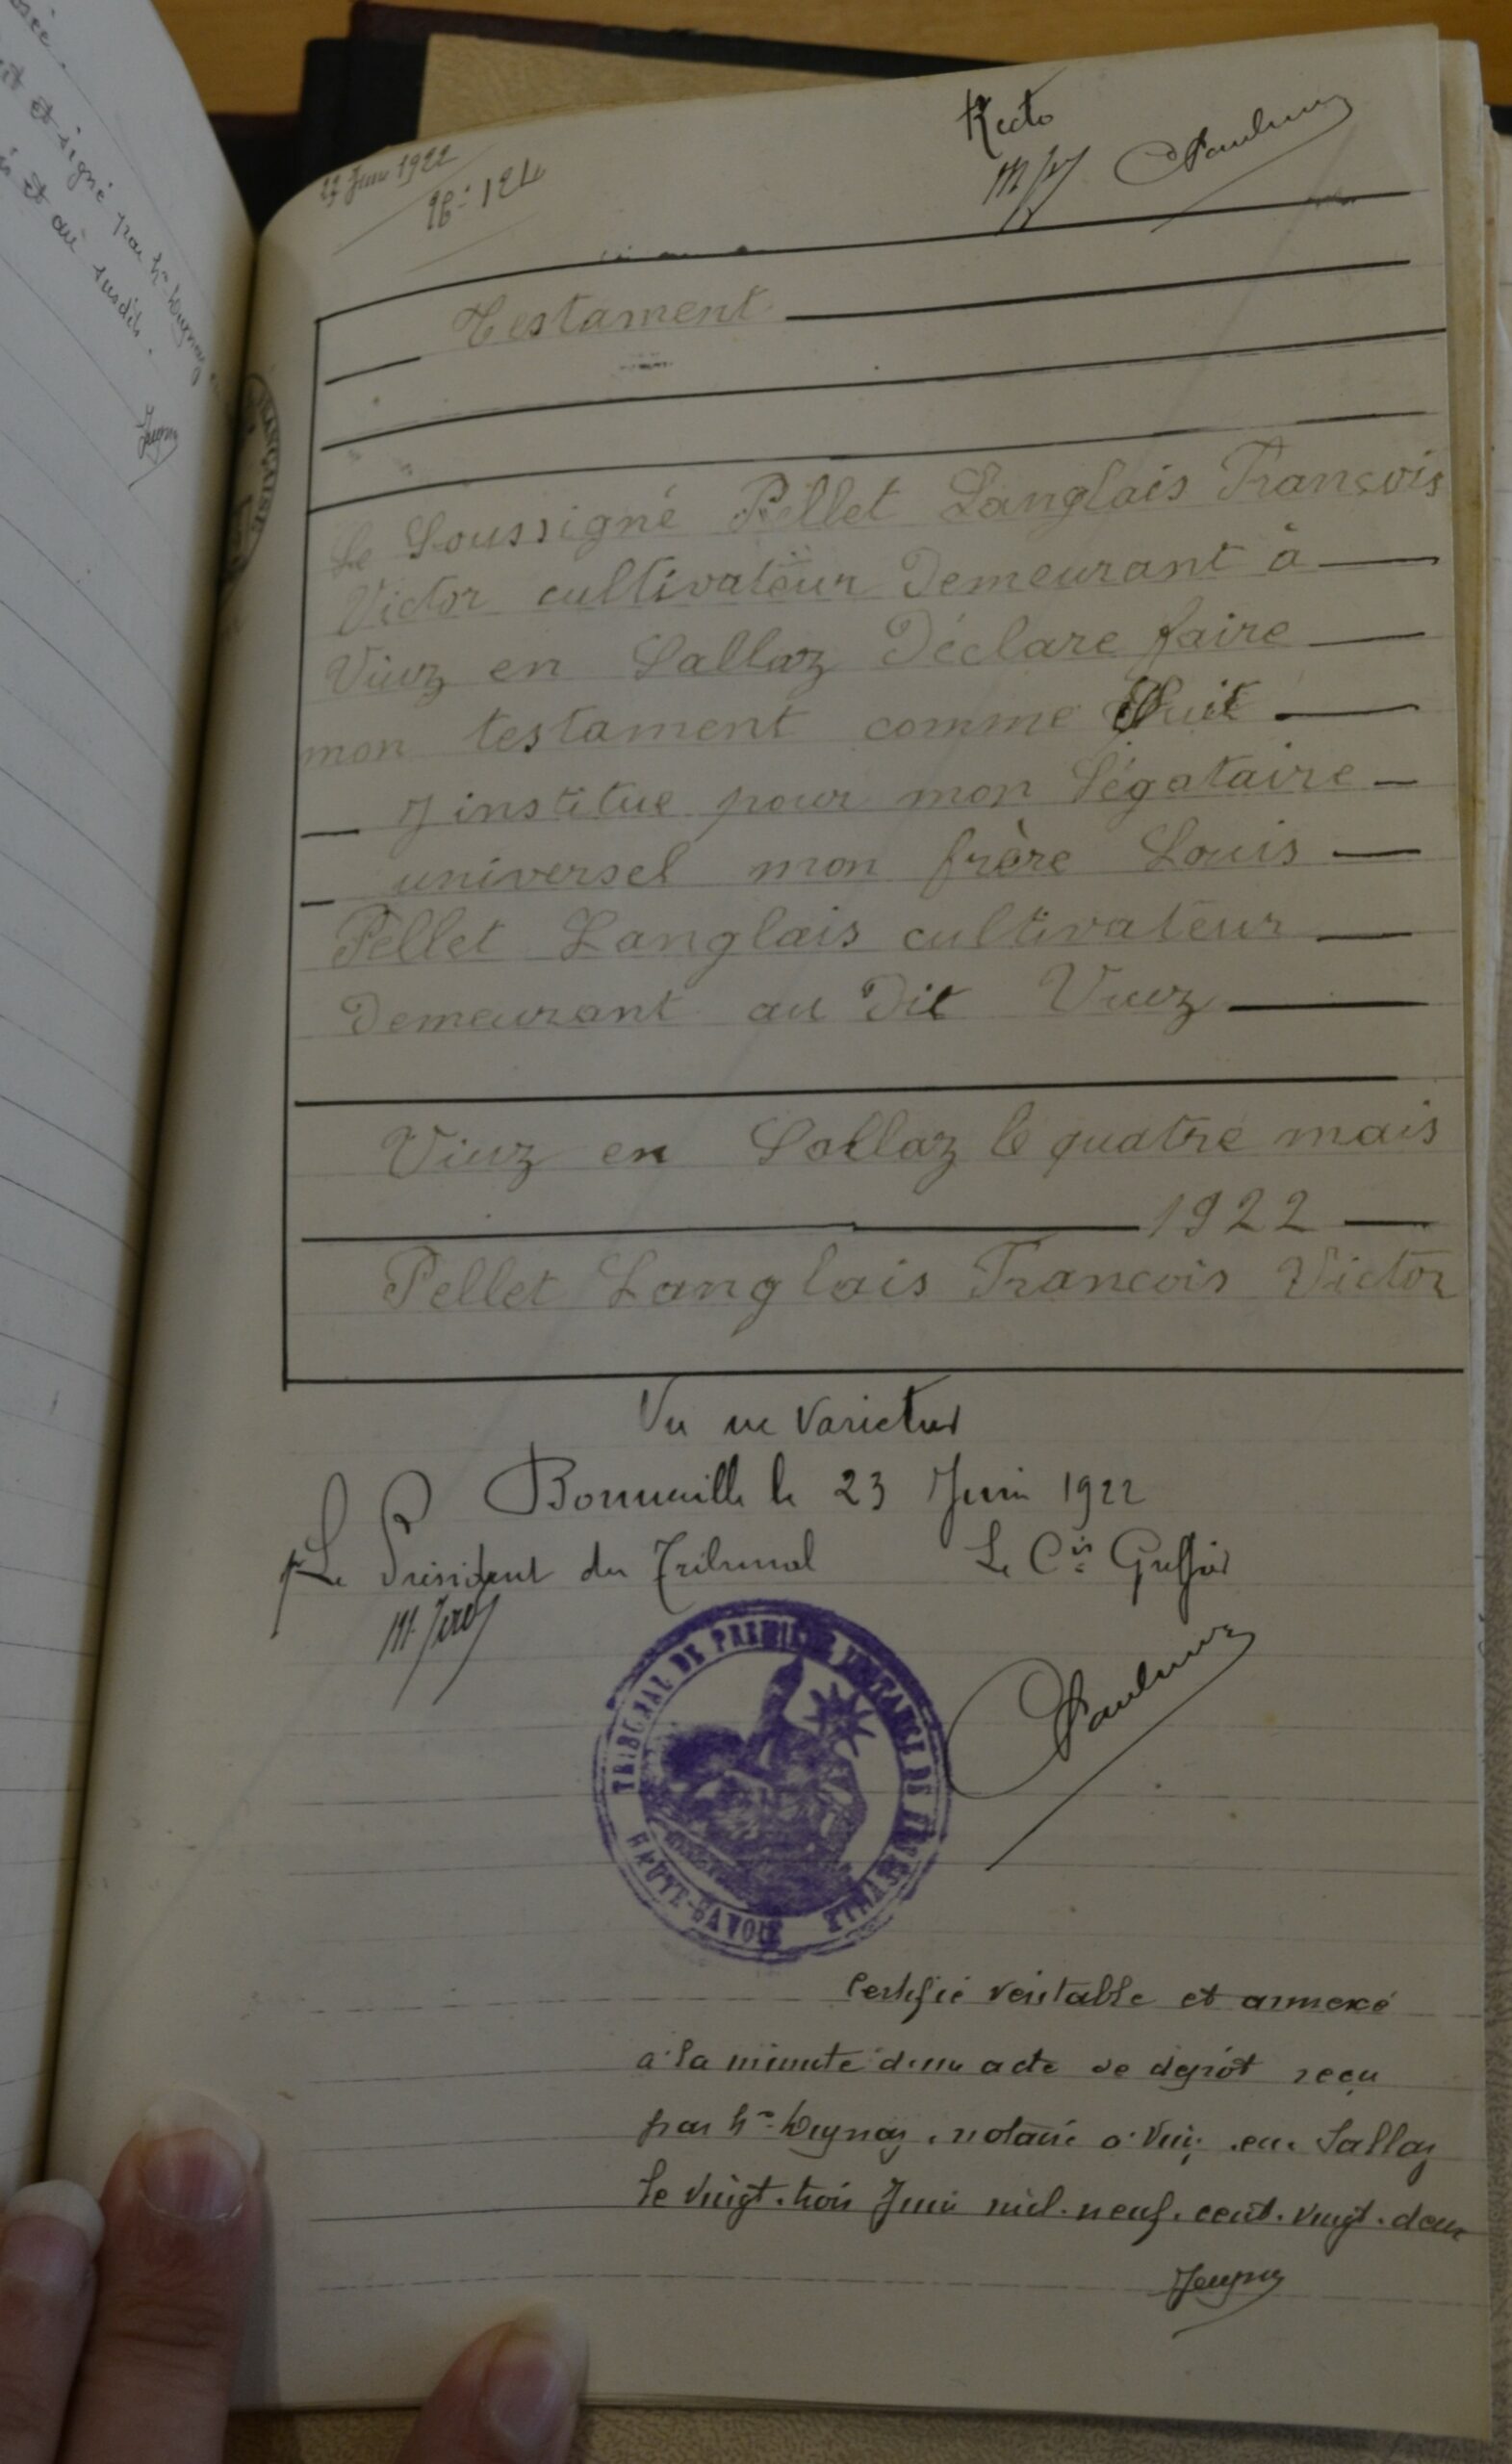 et signé par Me
et au susdits.
FRANÇAISE
27 Juin 1922
No 124
Recto
Testament
Le Soussigné Pellet Langlais François
Victor cultivateur Demeurant à
Viuz en Sallaz Déclare faire
mon testament comme Suit
J institue pour mon Légataire
universel mon frère Louis
Pellet Langlais cultivateur
Demeurant au Dit Viuz
Viuz en Sallaz le quatre mais
1922
Pellet Langlais Francois Victor
Vu ne varietur
Bonneville le 23 Juin 1922
Le Président du Tribunal Le Cis Greffier
TRIBUNAL DE PREMIERE INSTANCE DE BONNEVILLE
HAUTE-SAVOIE
Certifié véritable et annexé
à la minute d'un acte de dépôt reçu
par Me notaire à Viuz en Sallaz
le vingt-trois Juin mil-neuf-cent-vingt-deux